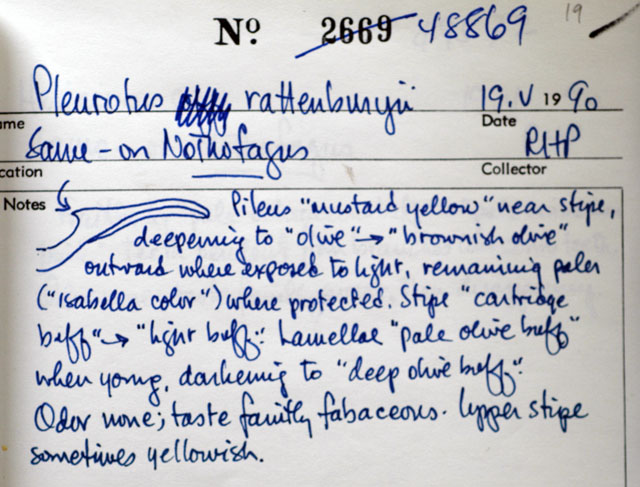 19
Nº 2669 48869
Pleurotus rattenburyii 19.V 19 90
ame Date
Same - on Nothofagus RHP
cation Collector
Notes Pileus "mustard yellow" near stipe,
deepening to "olive" → "brownish olive"
outward where exposed to light, remaining paler
("isabella color") where protected. Stipe "cartridge
buff" → "light buff". Lamellae "pale olive buff"
when young, darkening to "deep olive buff".
Odor none; taste faintly fabaceous. Upper stipe
sometimes yellowish.